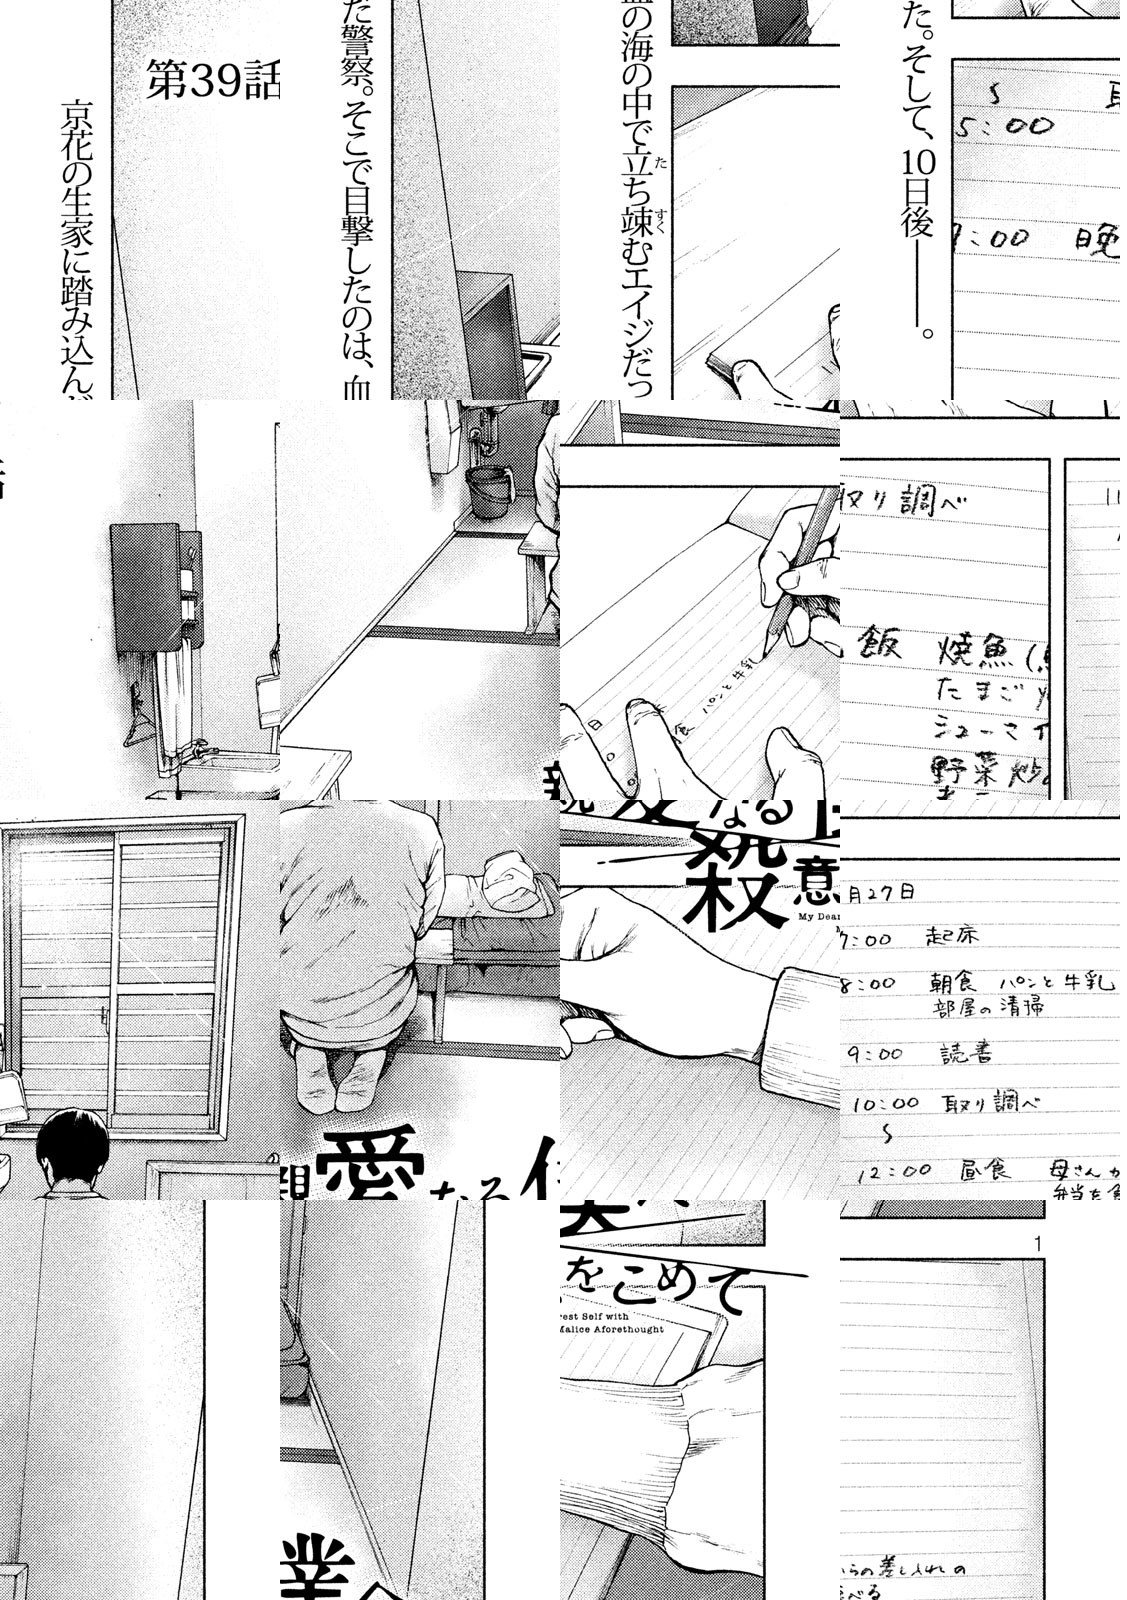 第39話
京花の生家に踏み込んだ
た警察。そこで目撃したのは、血
血の海の中で立ち竦むエイジだっ
た すく
た。そして、10日後――。
5:00
9:00 晩
日
食 パンと牛乳
取り調べ
飯 焼魚(
たまご
シューマイ
野菜炒
親愛なる
殺意
My Dear
月27日
7:00 起床
8:00 朝食 パンと牛乳
部屋の清掃
9:00 読書
10:00 取り調べ
12:00 昼食 母さんか
弁当を食
親愛なる
をこめて
rest Self with
Malice Aforethought
1
らの差し入れの
べる